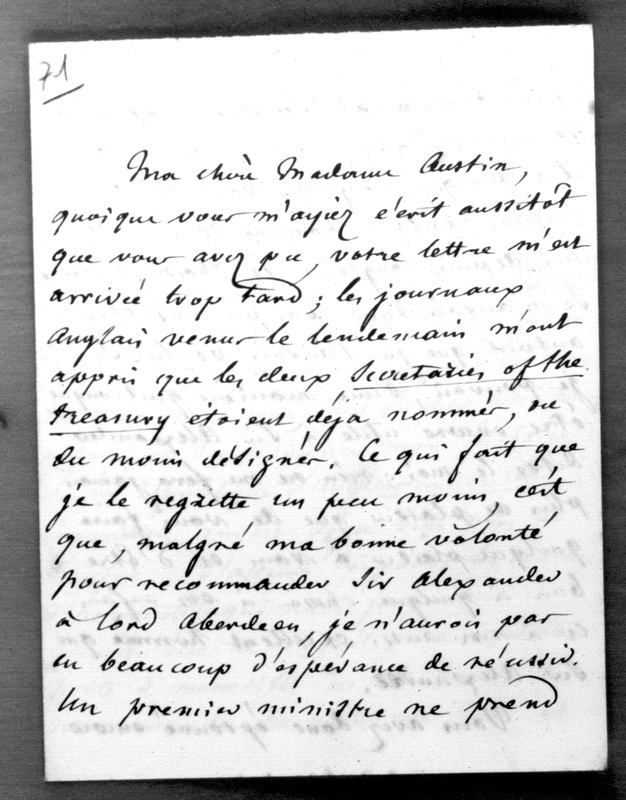 71
Ma chère Madame Austin,
quoique vous m'ayiez écrit aussitôt
que vous avez pu, votre lettre m'est
arrivée trop tard ; les journaux
Anglais venus le lendemain m'ont
appris que les deux Secretaries of the
treasury etoient déjà nommés, ou
du moins désignés. Ce qui fait que
je le regrette un peu moins, c'est
que, malgré ma bonne volonté
pour recommander Sir Alexander
à lord Aberdeen, je n'aurois pas
eu beaucoup d'espérance de réussir.
Un premier ministre ne prend